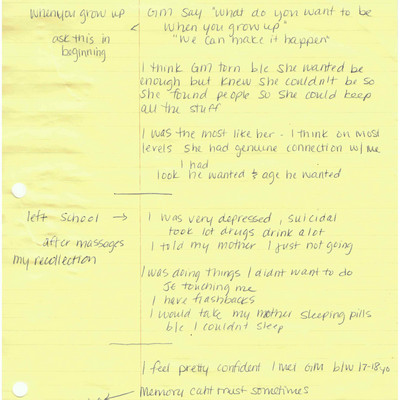 when you grow up
ask this in
beginning
GM say "what do you want to be
when you grow up"
"we can make it happen"
I think GM torn b/c she wanted be
enough but knew she couldn't be so
she found people so she could keep
all the stuff
I was the most like her - I think on most
levels she had genuine connection w/ me
I had
look he wanted & age he wanted
left school →
after massages
my recollection
I was very depressed, suicidal
took lot drugs drink alot
I told my mother I just not going
I was doing things I didnt want to do
JE touching me
I have flashbacks
I would take my mother sleeping pills
b/c I couldn't sleep
I feel pretty confident I met GM b/w 17-18 yo
Memory cant trust sometimes